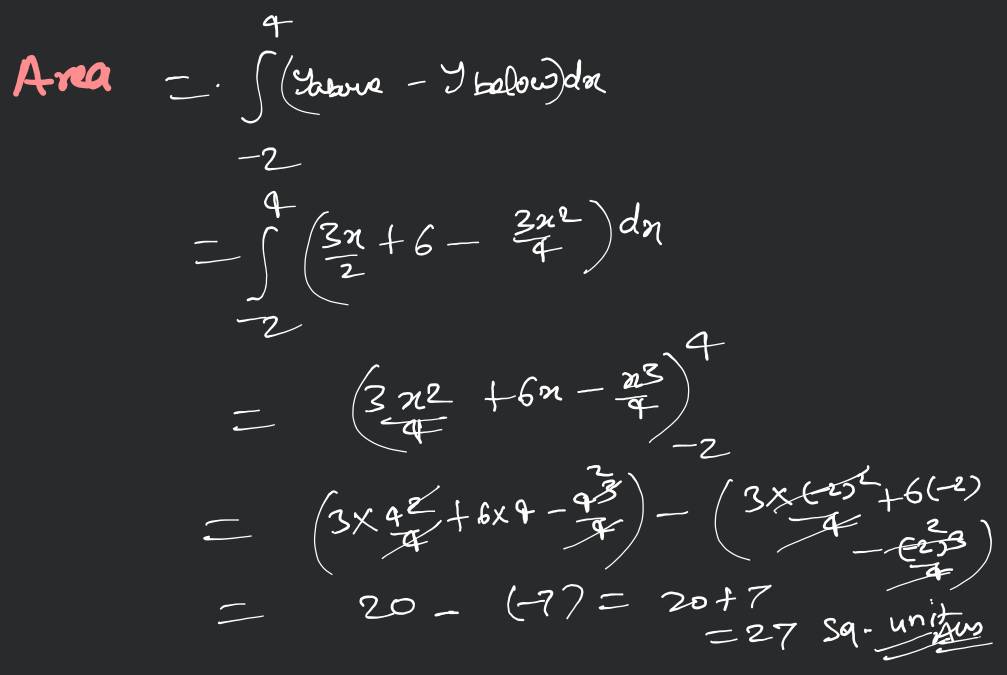 Area = ∫₋₂⁴ (Yabove - Ybelow) dx
= ∫₋₂⁴ (3x/2 + 6 - 3x²/4) dx
= (3x²/4 + 6x - x³/4)₋₂⁴
= (3×4²/4 + 6×4 - 4³/4) - (3×(-2)²/4 + 6(-2) - (-2)³/4)
= 20 - (-7) = 20+7
= 27 sq. unit Ans